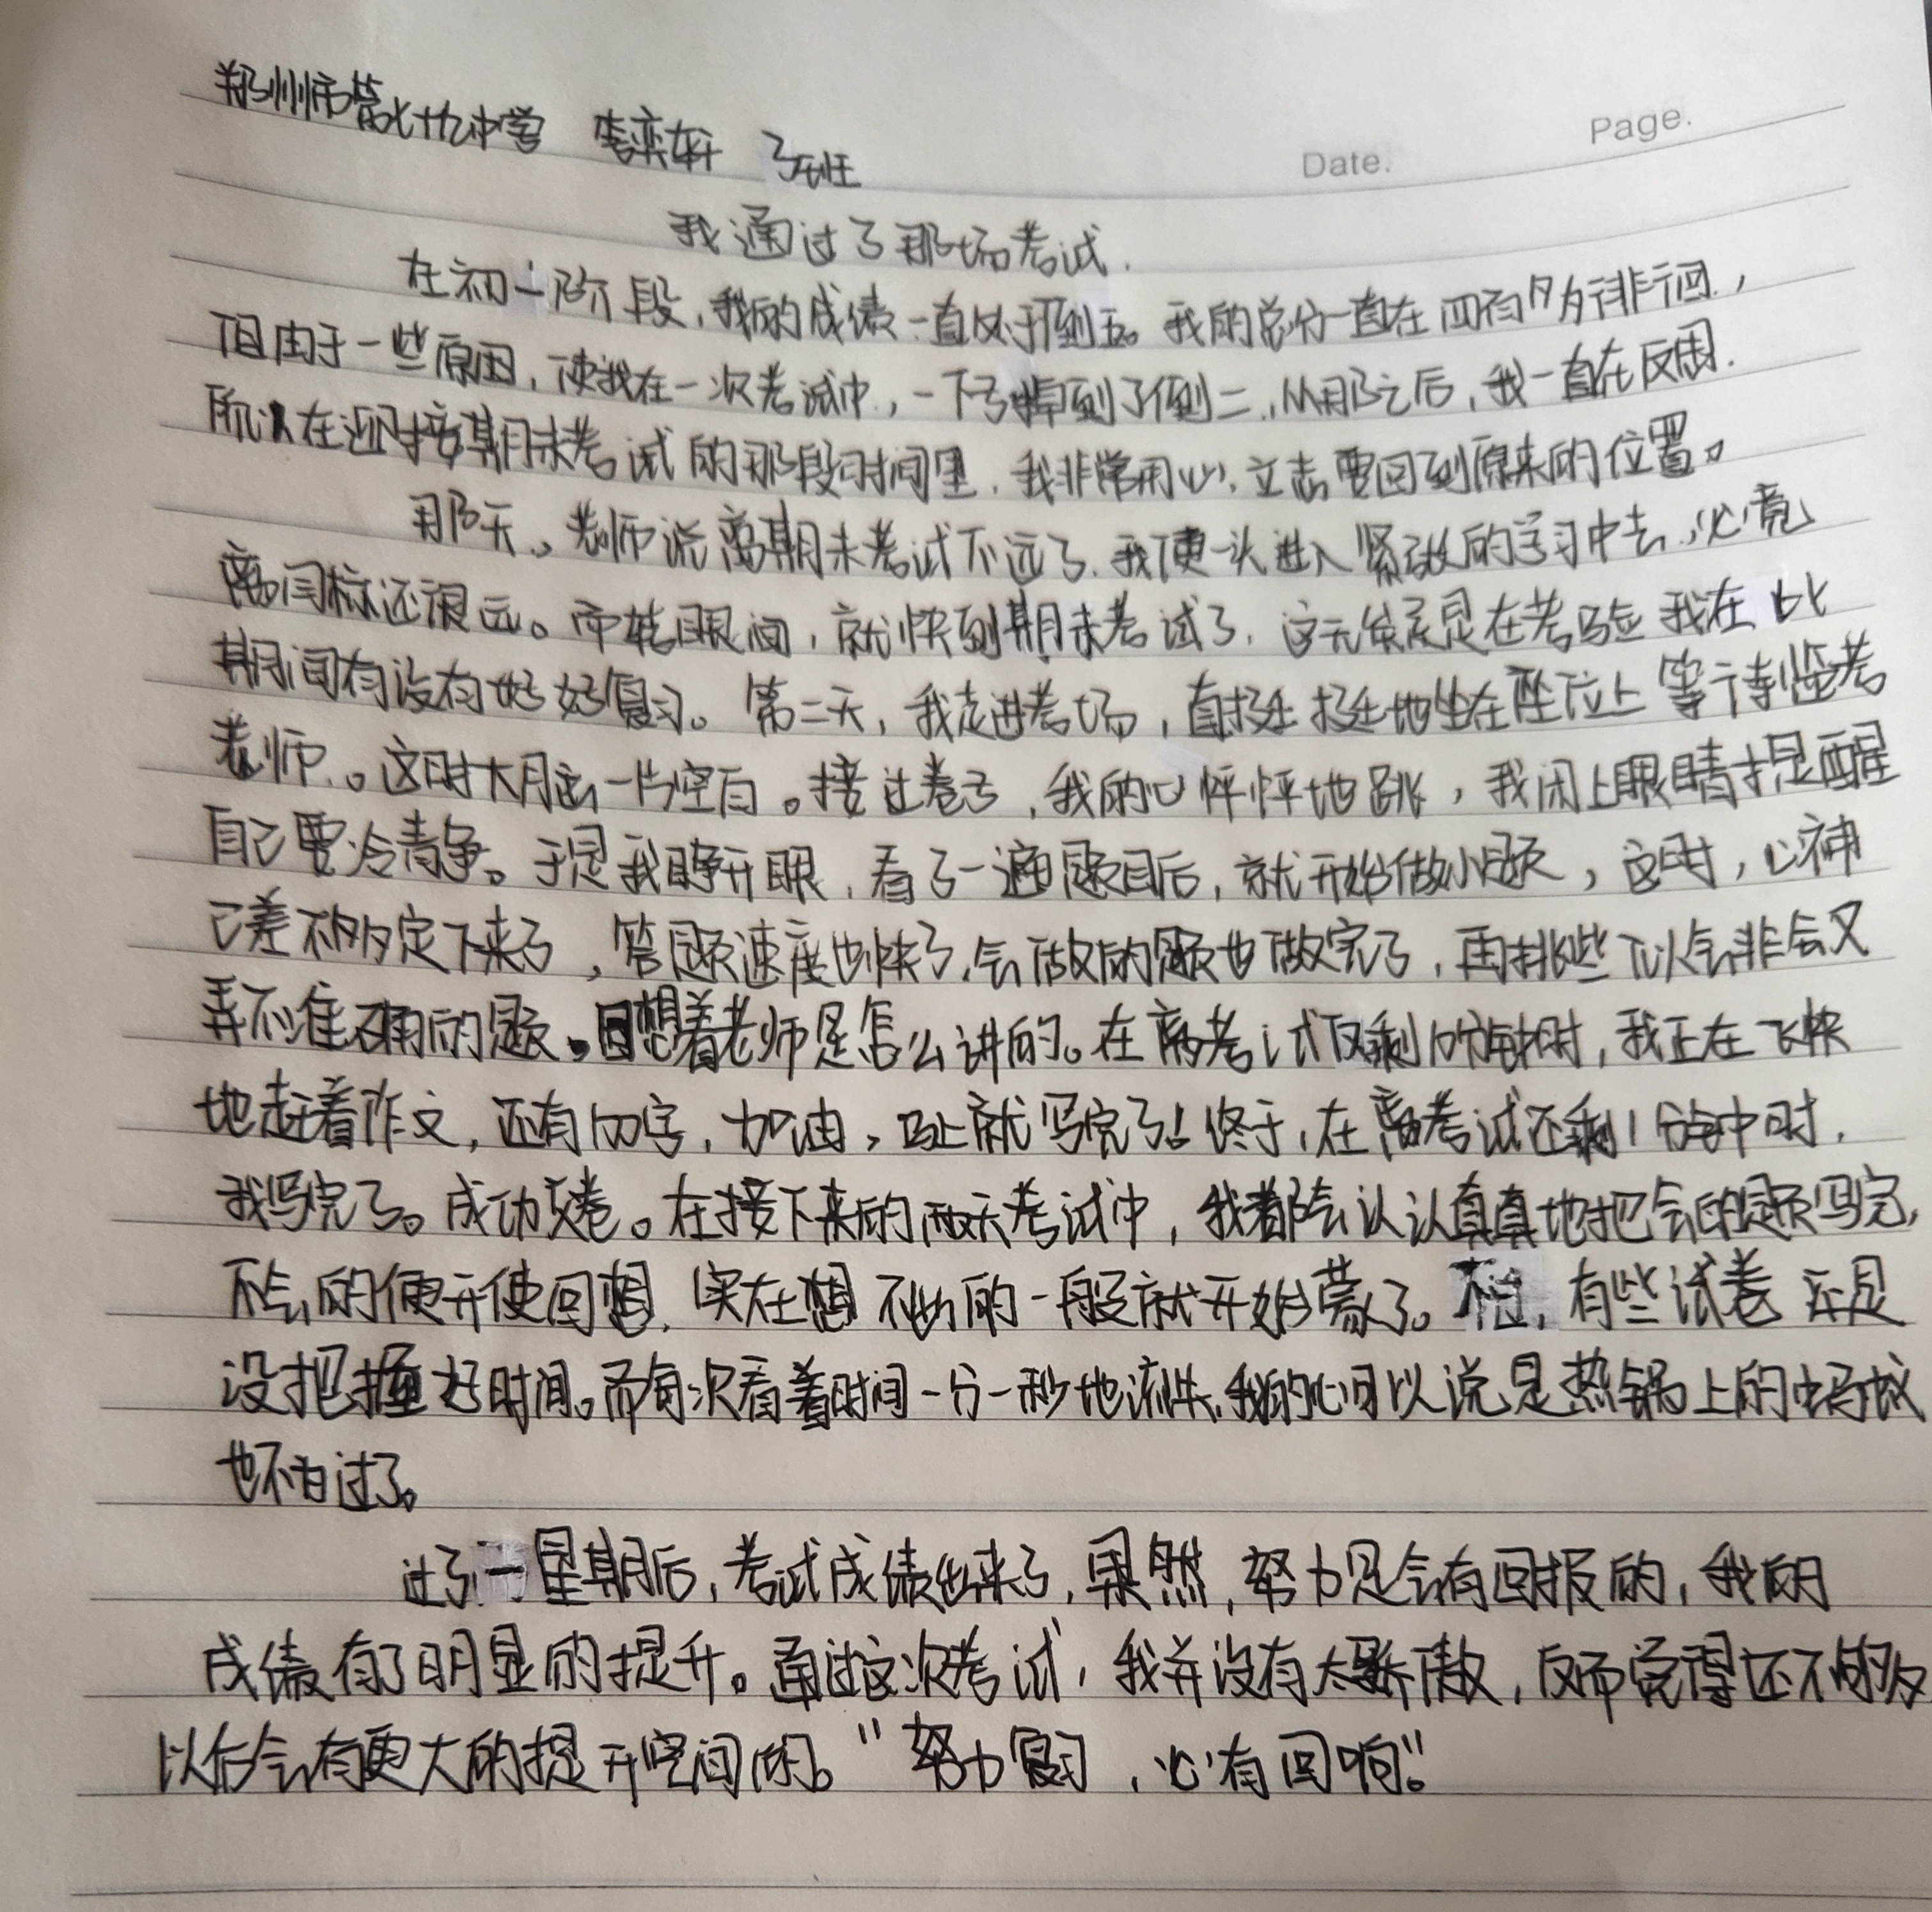 郑州市第七十九中学 李奕轩 3班
Page.
Date.
我通过了那场考试.
在初一阶段，我的成绩一直处于倒五。我的总分一直在四百多徘徊，
但由于一些原因，使我在一次考试中，一下子掉到了倒二，从那之后，我一直在反思.
所以在迎接期末考试的那段时间里，我非常用心，立志要回到原来的位置。
那天，老师说离期末考试不远了，我便一头进入紧张的学习中去，必竟
离目标还很远。而转眼间，就快到期末考试了，这无疑是在考验我在此
期间有没有好好复习。第二天，我走进考场，直挺挺地坐在座位上等待监考
老师。这时大脑一片空白。接过卷子，我的心怦怦地跳，我闭上眼睛提醒
自己要冷静。于是我睁开眼，看了一遍题目后，就开始做小题，这时，心神
已差不多定下来了，答题速度也快了，会做的题也做完了，再挑些似会非会又
弄不准确的题。回想着老师是怎么讲的。在离考试仅剩10分钟时，我正在飞快
地赶着作文，还有100字，加油，马上就写完了！终于，在离考试还剩1分钟时，
我写完了。成功交卷。在接下来的两天考试中，我都会认认真真地把会的题写完，
不会的便开使回想，实在想不出的一般就开始蒙了。不过，有些试卷还是
没把握好时间。而每次看着时间一分一秒地流失，我的心可以说是热锅上的蚂蚁
也不为过了。
过了一星期后，考试成绩出来了，果然，努力是会有回报的，我的
成绩有了明显的提升。通过这次考试，我并没有太骄傲，反而觉得还不够
以后会有更大的提升空间的。“努力复习，必有回响”。